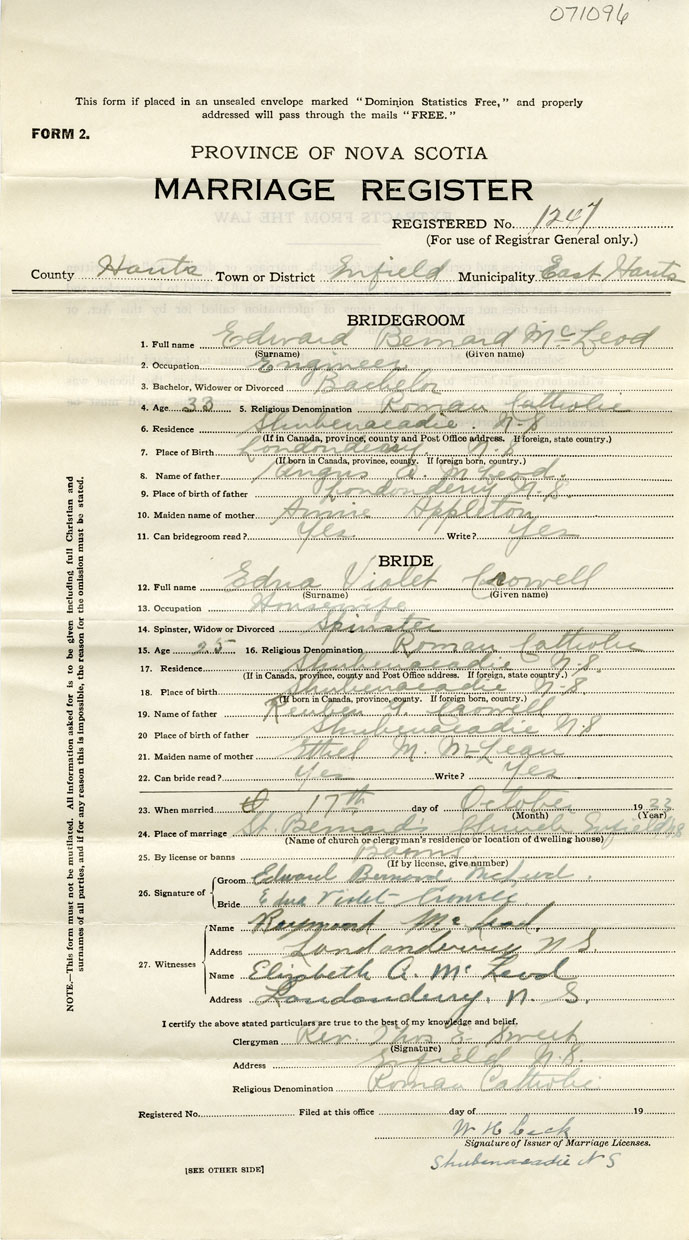 071096
This form if placed in an unsealed envelope marked "Dominion Statistics Free," and properly
addressed will pass through the mails "FREE."
FORM 2.
PROVINCE OF NOVA SCOTIA
MARRIAGE REGISTER
REGISTERED No. 1247
(For use of Registrar General only.)
County Hants Town or District Enfield Municipality East Hants
BRIDEGROOM
1. Full name Edward Bernard McLeod
(Surname) (Given name)
2. Occupation Engineer
3. Bachelor, Widower or Divorced Bachelor
4. Age 33 5. Religious Denomination Roman Catholic
6. Residence Shubenacadie N.S
(If in Canada, province, county and Post Office address. If foreign, state country.)
7. Place of Birth Londonderry N.S
(If born in Canada, province, county. If foreign born, country.)
8. Name of father Angus McLeod
9. Place of birth of father Londonderry N.S.
10. Maiden name of mother Annie Appleton
11. Can bridegroom read? Yes Write? Yes
BRIDE
12. Full name Edna Violet Crowell
(Surname) (Given name)
13. Occupation Housewife
14. Spinster, Widow or Divorced Spinster
15. Age 25 16. Religious Denomination Roman Catholic
17. Residence Shubenacadie N.S
(If in Canada, province, county and Post Office address. If foreign, state country.)
18. Place of birth Shubenacadie N.S.
(If born in Canada, province, county. If foreign born, country.)
19. Name of father Crowell
20 Place of birth of father Shubenacadie N.S
21. Maiden name of mother Ethel M. McLean
22. Can bride read? Yes Write? Yes
23. When married 17th day of October 1933
(Month) (Year)
24. Place of marriage St. Bernard's Church Enfield N.S
(Name of church or clergyman's residence or location of dwelling house)
25. By license or banns Banns
(If by license, give number)
26. Signature of Groom Edward Bernard McLeod.
Bride Edna Violet Crowell
27. Witnesses Name Raymond McLeod.
Address Londonderry N.S.
Name Elizabeth A. McLeod
Address Londonderry, N. S.
I certify the above stated particulars are true to the best of my knowledge and belief.
Clergyman Rev. Thos E. Sweet
(Signature)
Address Enfield N.S.
Religious Denomination Roman Catholic
Registered No. Filed at this office day of 19
W H Beck
Signature of Issuer of Marriage Licenses.
Shubenacadie N S
[SEE OTHER SIDE]
NOTE.—This form must not be mutilated. All information asked for is to be given including full Christian and
surnames of all parties, and if for any reason this is impossible, the reason for the omission must be stated.